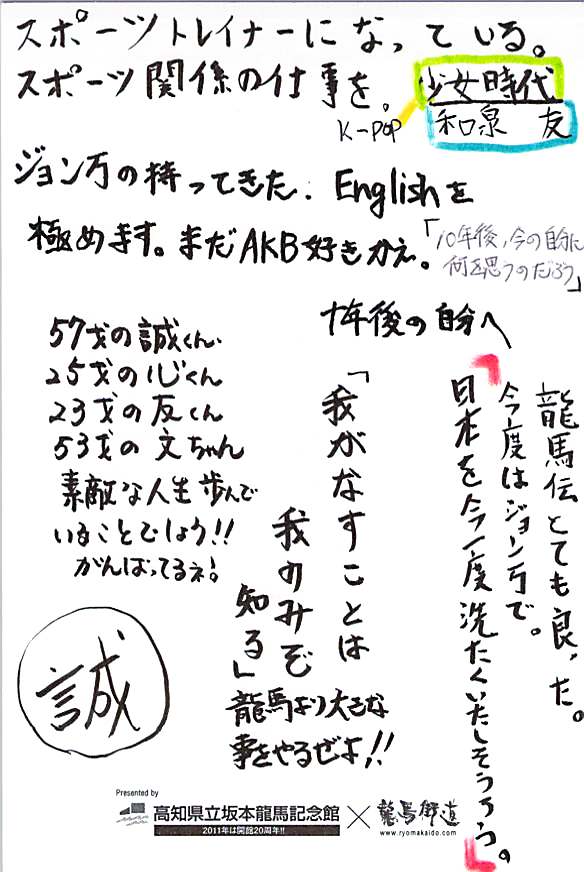 スポーツトレイナーになっている。
スポーツ関係の仕事を。
K-POP
少女時代
和泉 友
ジョン万の持ってきた、Englishを
極めます。まだAKB好きかぇ。
「10年後、今の自分に
何を思うのだろう」
十年後の自分へ
57才の誠くん
25才の心くん
23才の友くん
53才の文ちゃん
素敵な人生歩んで
いることでしょう!!
がんばってるネ!
龍馬伝とても良かった。
今度はジョン万で。
「日本を今一度洗たくいたしそうろう。」
「我がなすことは
我のみぞ
知る」
龍馬より大きな
事をやるぜよ!!
誠
Presented by
高知県立坂本龍馬記念館
2011年は開館20周年!!
×
龍馬街道
www.ryomakaido.com